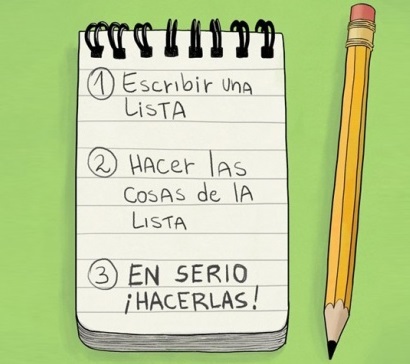 ① Escribir una
Lista
② Hacer las
cosas de la
Lista
③ EN SERIO
¡HACERLAS!